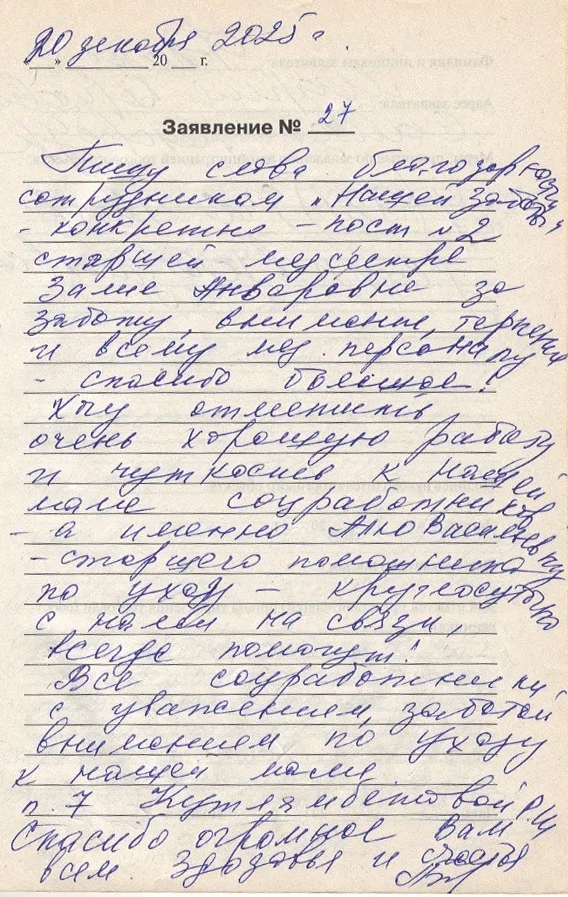 20 декабря 2025 г
« » 20 г.
Заявление № 27
Пишу слова благодарности
сотрудникам "Нашей Заботы"
- конкретно - пост №2
старшей медсестре
Залие Анваровне за
заботу, внимание, терпение
и всему мед. персоналу
- спасибо большое!
Хочу отметить
очень хорошую работу
и чуткость к нашей
маме соцработников
- а именно Алю Васильевну
- старшего помощника
по уходу - круглосуточно
с нами на связи,
всегда помогут!
Все соцработники
с уважением, заботой
вниманием по уходу
к нашей маме
п. 7 Кутлямбетовой Р.Ш
Спасибо огромное Вам
всем. Здоровья и счастья